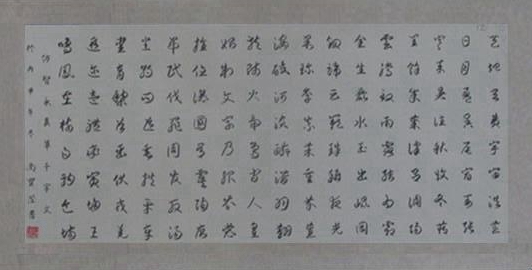 天地玄黃宇宙洪荒
日月盈昃辰宿列張
寒來暑往秋收冬藏
閏餘成歲律呂調陽
雲騰致雨露結為霜
金生麗水玉出崑岡
劍號巨闕珠稱夜光
果珍李柰菜重芥薑
海鹹河淡鱗潛羽翔
龍師火帝鳥官人皇
始制文字乃服衣裳
推位讓國有虞陶唐
弔民伐罪周發殷湯
坐朝問道垂拱平章
愛育黎首臣伏戎羌
遐邇壹體率賓歸王
鳴鳳在樹白駒食場
仿智永真草千字文